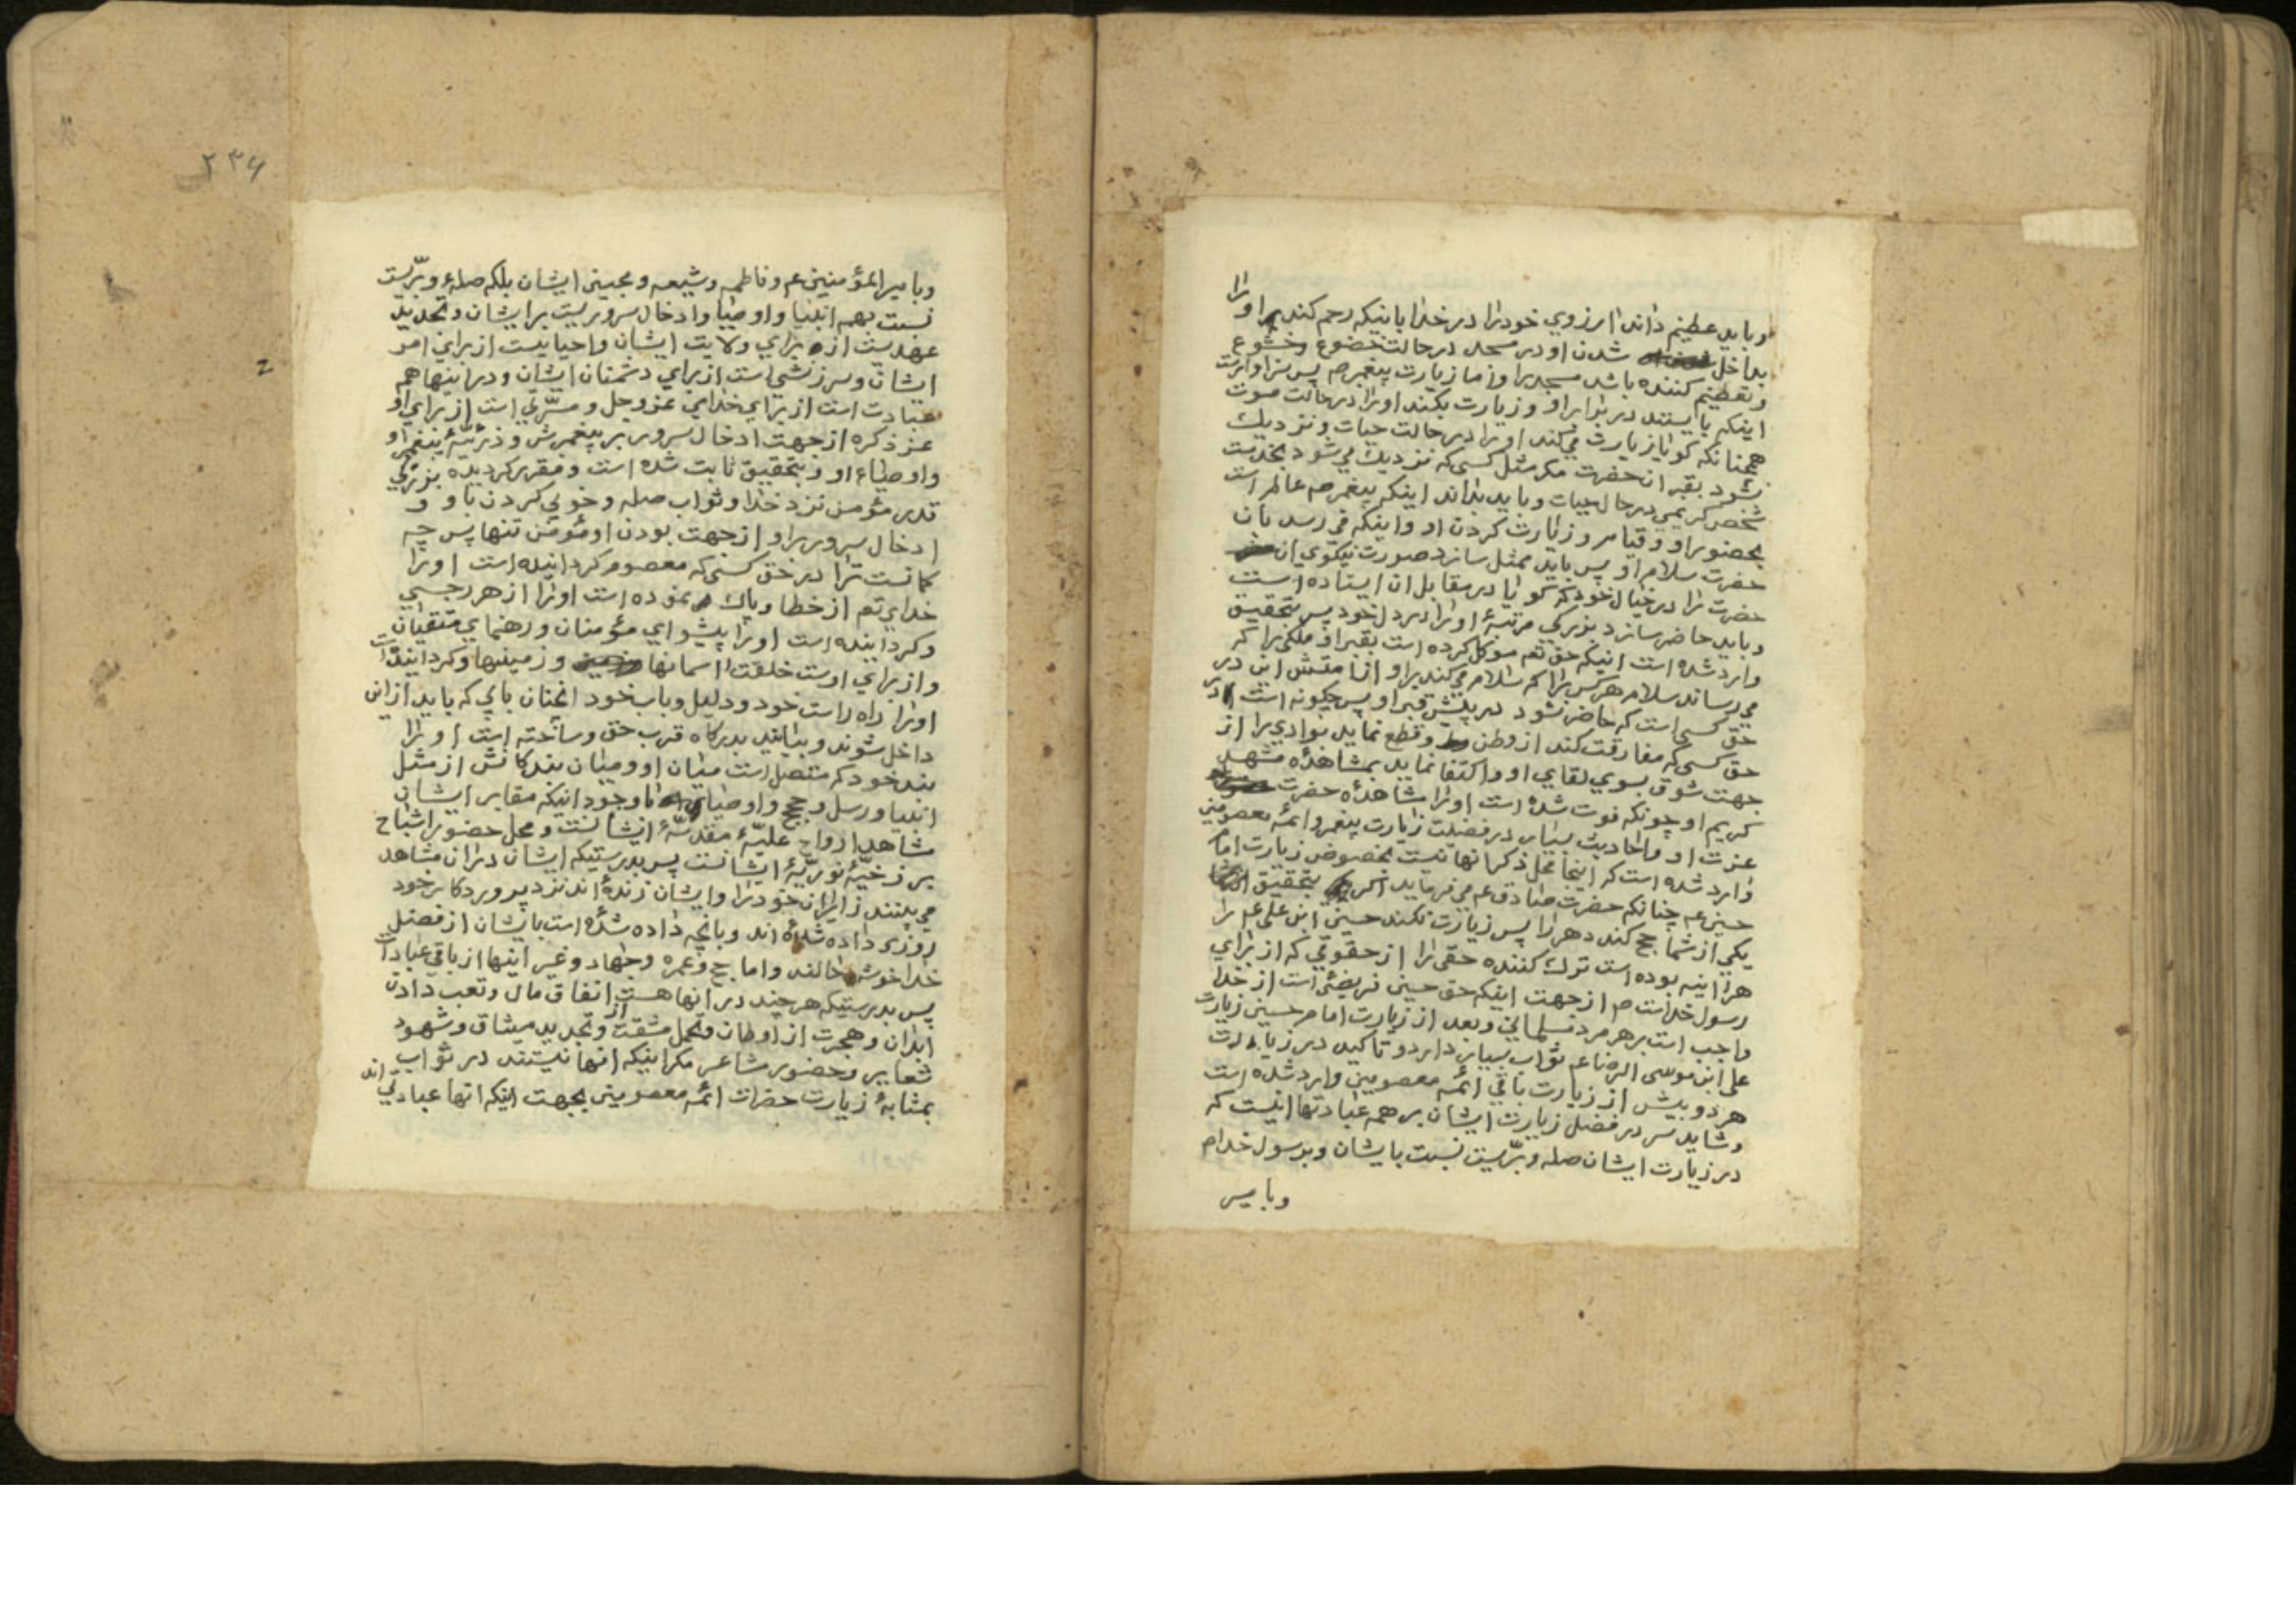 و باید عظیم داند ارزوی خود را در خدا باینکه رحم کند براو را
بداخل شدن او در مسجد در حالت خضوع و خشوع
و تعظیم کننده باشد مسجد را و زیارت پیغمبر ص پس سزاوار است
اینکه بایستد در برابر او و زیارت بکند او را در حالت موت
همچنانکه کویا زیارت میکند او را در حالت حیات و نزدیک
نشود بقبر انحضرت مکر مثل کسی که نزدیک می شود بخدمت
شخص کریمی در حال حیات و باید بداند اینکه پیغمبر ص عالم است
بحضور او و قیام و زیارت کردن او و اینکه می رسد بان
حضرت سلام او پس باید ممثل سازد صورت نیکوی ان
حضرت را در خیال خود که کویا در مقابل ان ایستاده است
و باید حاضر سازد بزرکی مرتبۀ او را در دل خود پس بتحقیق
وارد شده است اینکه حق تعم موکل کرده است بقبر او ملکی را که
می رساند سلام هر کس را که سلام می کند براو از امتش این در
حق کسی است که حاضر نشود در پیش قبر او پس چکونه است در
حق کسی که مفارقت کند از وطن و قطع نماید بوادی را از
جهت شوق بسوی لقای او و اکتفا نماید بمشاهدۀ مشهد
کریم او چونکه فوت شده است او را مشاهدۀ حضرت
عزت او و احادیث بسیار در فضیلت زیارت پیغمبر و ائمه معصومین
وارد شده است که اینجا محل ذکر انها نیست بخصوص زیارت امام
حسین عم چنانکه حضرت صادق عم می فرماید اکر بتحقیق
یکی از شما حج کند دهر را پس زیارت نکند حسین ابن علی عم را
هراینه بوده است ترک کننده حقی را از حقوقی که از برای
رسول خداست ص از جهت اینکه حق حسین فریضۀ است از خدا
واجب است بر هر مرد مسلمانی و بعد از زیارت امام حسین زیارت
علی ابن موسی الرضا عم ثواب بسیار دارد و تاکید در زیارت
هر دو بیش از زیارت باقی ائمه معصومین وارد شده است
و شاید سر در فضل زیارت ایشان بر همه عبادتها اینست که
در زیارت ایشان صله و بریست نسبت بایشان و برسول خدا ص
و بامیر
۲۳۶
و بامیر المؤمنین عم و فاطمه و شیعه و محبین ایشان بلکه صله و بریست
نسبت بهمه انبیا و اوصیا و ادخال سروریست بر ایشان و تجدید
عهدیست از برای ولایت ایشان و احیاییست از برای امر
ایشان و سرزنشی است از برای دشمنان ایشان و در اینها هم
عبادت است از برای خدای عز و جل و مسرتی است از برای او
عز ذکره از جهت ادخال سرور بر پیغمبرش و ذریۀ پیغمبر او
و اوصیاء او و بتحقیق ثابت شده است و مقرر کردیده بزرکی
قدر مؤمن نزد خدا و ثواب صله و خوبی کردن باو و
ادخال سرور براو از جهت بودن او مؤمن تنها پس چه
کمانست ترا در حق کسی که معصوم کردانیده است او را
خدای تعم از خطا و پاک نموده است او را از هر رجسی
و کردانیده است او را پیشوای مؤمنان و رهنمای متقیان
و از برای اوست خلقت اسمانها و زمینها و کردانیده است
او را راه راست خود و دلیل و باب خود انچنان بابی که باید از این
داخل شوند و بیایند بدرکاه قرب حق و ساخته است او را
بند خود که متصل است میان او و میان بندکانش از مثل
انبیا و رسل و حجج و اوصیای با وجود اینکه مقابر ایشان
مشاهد ارواح علیۀ مقدسۀ ایشانست و محل حضور اشباح
برزخیۀ نوریۀ ایشانست پس بدرستیکه ایشان در ان مشاهد
می بینند زایران خود را و ایشان زنده اند نزد پروردکار خود
روزی داده شده اند و بانچه داده شده است بایشان از فضل
خدا خوشحالند و اما حج و عمره و جهاد و غیر اینها از باقی عبادات
پس بدرستیکه هر چند در انها هست انفاق مال و تعب دادن
ابدان و هجرت از اوطان و تحمل مشقت و تجدید میثاق و شهود
شعایر و حضور مشاعر مکر اینکه انها نیستند در ثواب
بمثابۀ زیارت حضرات ائمه معصومین بجهت اینکه انها عبادتی اند